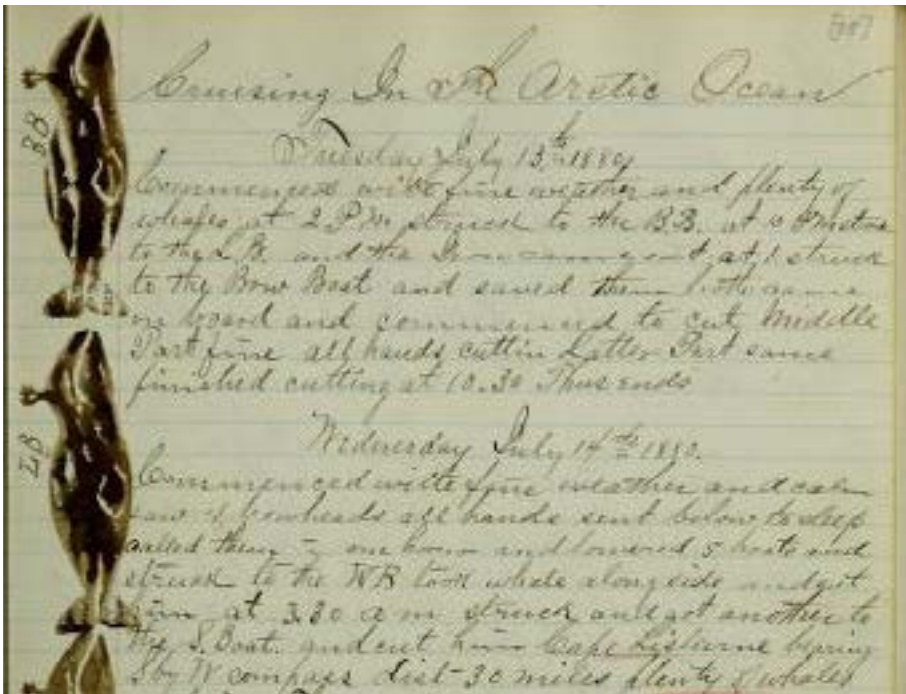 Cruising In The Arctic Ocean
Tuesday July 13th 1880
Commenced with fine weather and plenty of
whales at 2 P.M. struck to the B.B. at
to the L.B. and the at struck
to the Bow Boat and saved them both came
on board and commenced to cut, Middle
Part fine all hands cuttin Latter Part same
finished cutting at 10.30 Thus ends
BB
LB
Wednesday July 14th 1880.
Commenced with fine weather and calm
saw bowheads all hands sent below to sleep
called them in one hour and lowered 5 boats and
struck to the WB took whale alongside and got
him at 3.30 a m struck and got another to
the S. Boat. and cut him Cape Lisburne bearing
S by W compass dist 30 miles plenty of whales